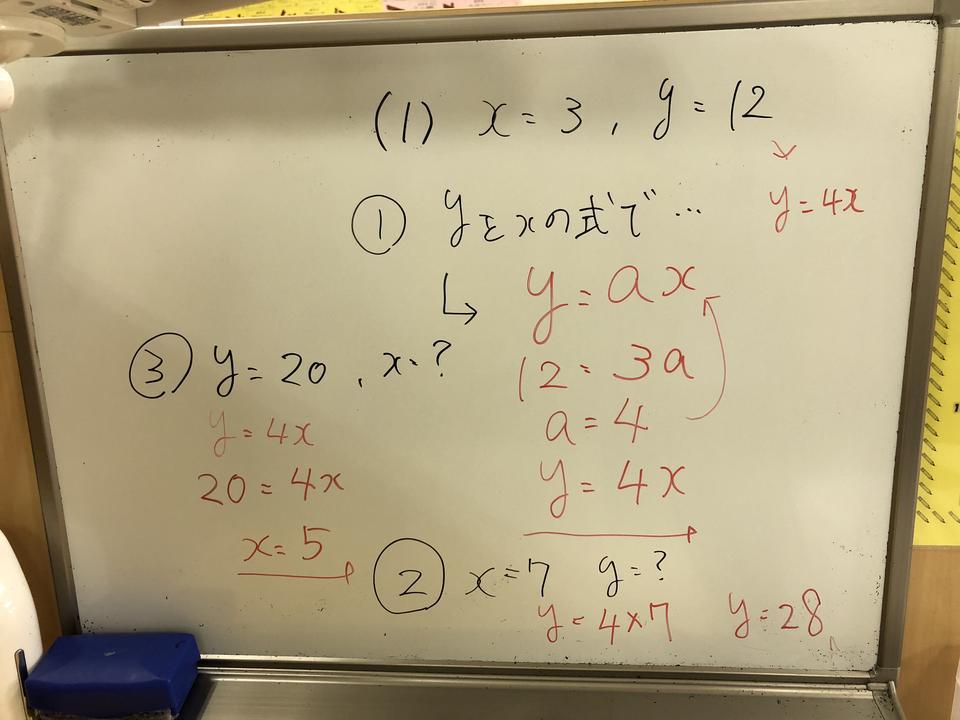 (1) x=3, y=12
y=4x
① yをxの式で…
y=ax
12=3a
a=4
y=4x
② x=7 y=?
y=4×7 y=28
③ y=20, x=?
y=4x
20=4x
x=5